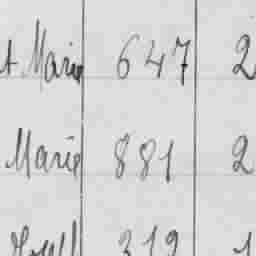 t Marie 647 2
Marie 881 2
319 1